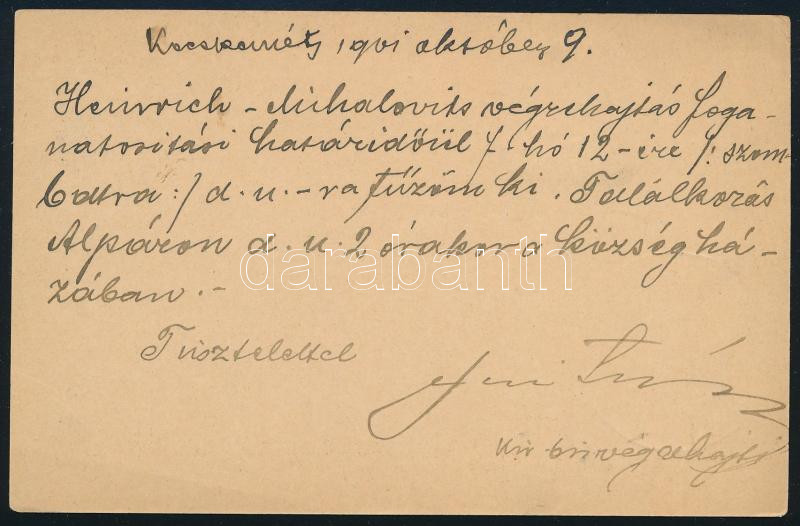 Kecskemét, 1901 október 9.
Heinrich - Mihalovits végrehajtás foga-
natositási határidőül f. hó 12-ére /: szom-
batra :/ d. u. -ra tűzöm ki. Találkozás
Alpáron d. u. 2 órakor a községhá-
zában. -
darabanth
Tisztelettel
kir bir végrehajtó